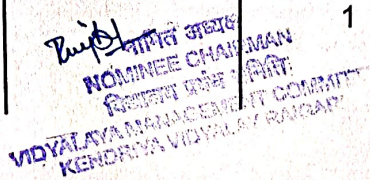 1
नामित अध्यक्ष
NOMINEE CHAIRMAN
विद्यालय प्रबंध समिति
VIDYALAYA MANAGEMENT COMMITTEE
KENDRIYA VIDYALAY RAIGARH